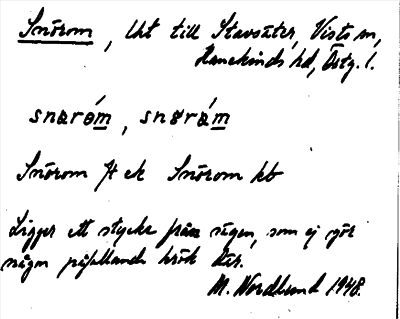 Snörom, Lht till Stavsäter, Vists sn,
Hanekinds hd, Östg. l.
snɵrɵ́m, snɵrɑ́m
Snörom Jk ek Snörom kb
Ligger ett stycke från vägen, som ej gör
någon påfallande krök där.
M. Nordlund 1948.